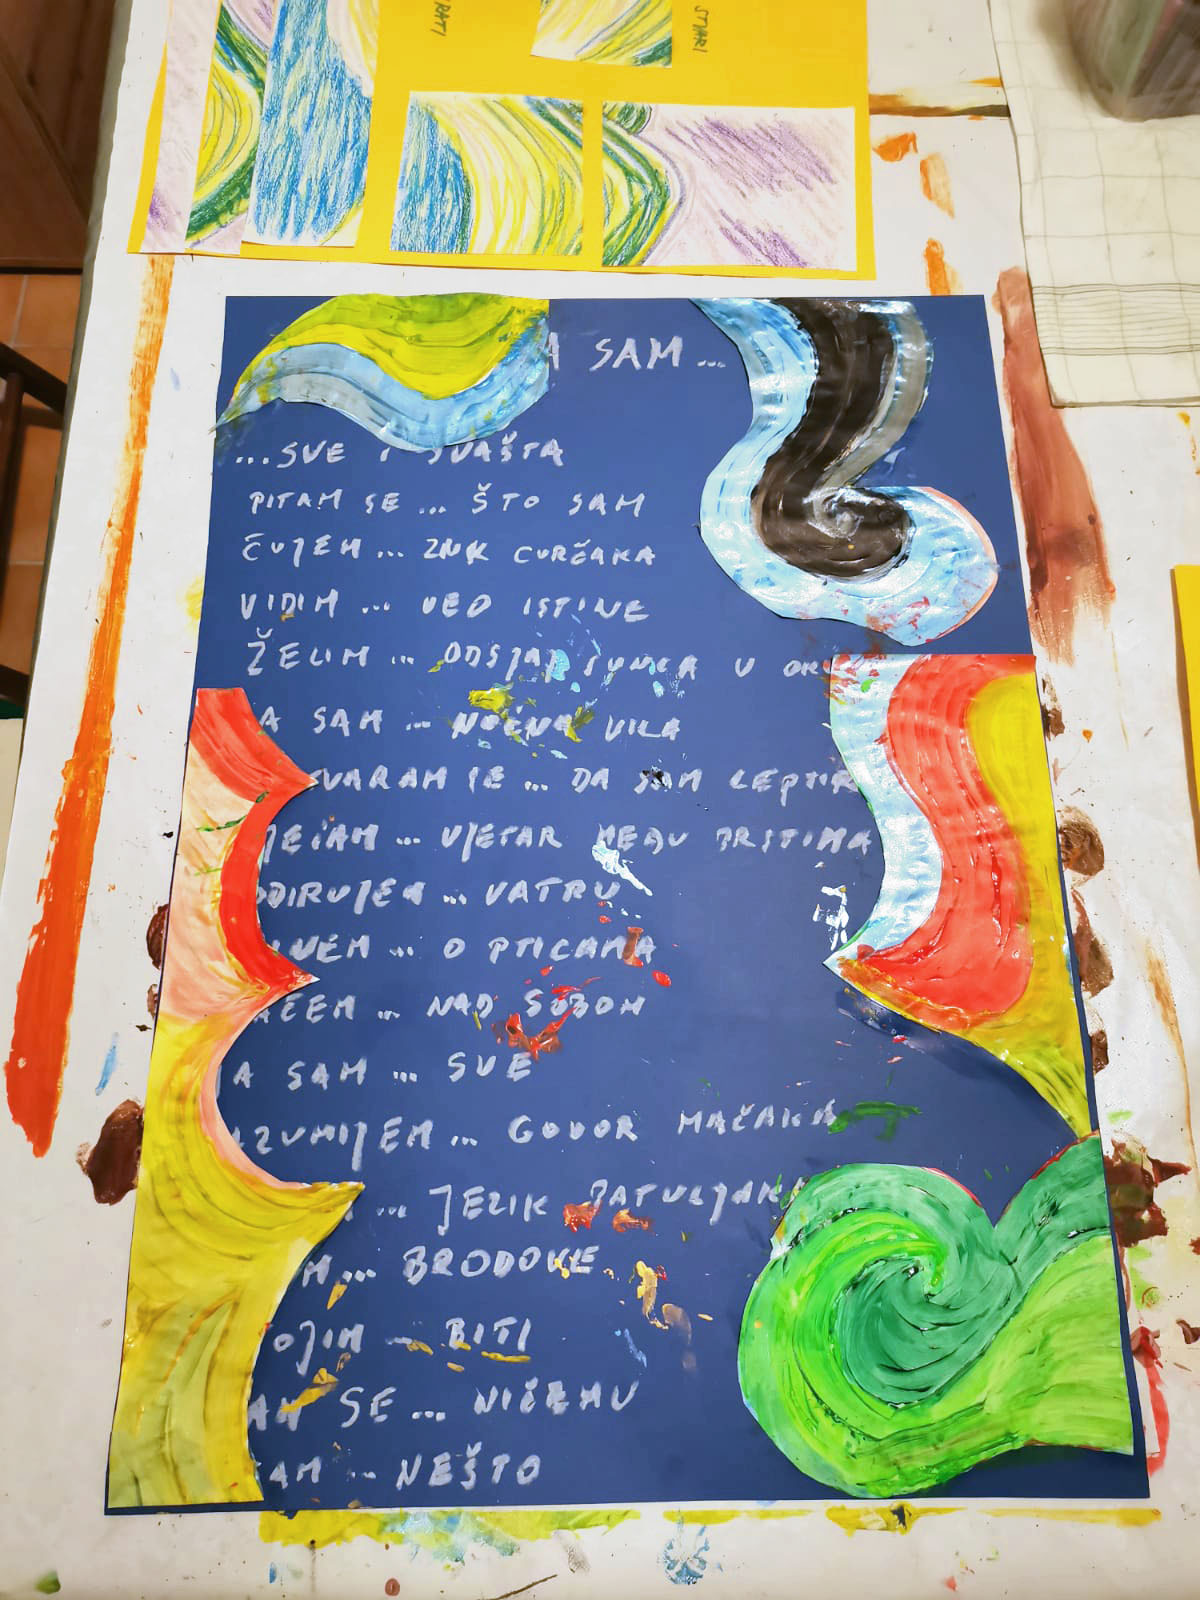 STVARI
A SAM ...
...SVE I SVAŠTA
PITAM SE ... ŠTO SAM
ČUJEM ... ZVUK CVRČAKA
VIDIM ... VEO ISTINE
ŽELIM ... ODSJAJ SUNCA U
A SAM ... NOĆNA VILA
VARAM SE ... DA SAM LEPTIR
JEĆAM ... VJETAR MEĐU PRSTIMA
DIRUJEM ... VATRU
... O PTICAMA
AČEM ... NAD SOBOM
A SAM ... SVE
ZUMIJEM ... GOVOR MAČAKA
... JEZIK PATULJAKA
M ... BRODOVE
OJIM ... BITI
AM SE ... NIČEMU
AM ... NEŠTO